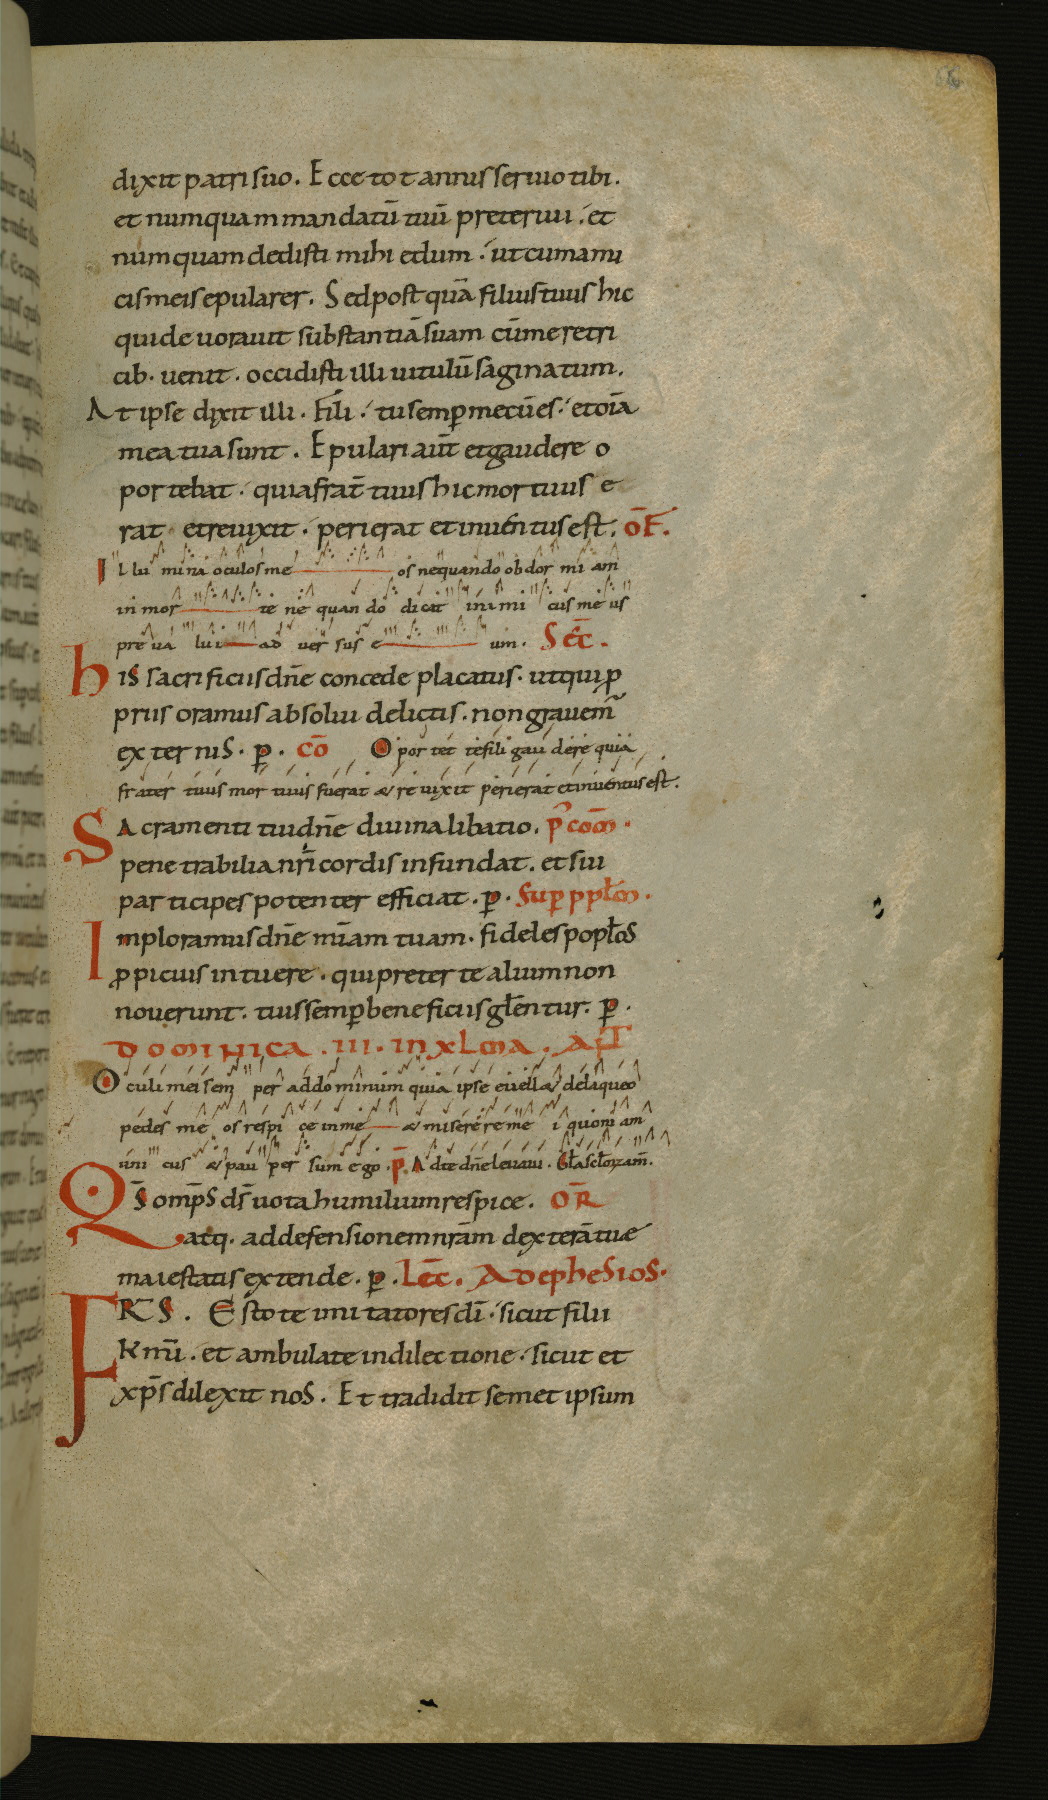 dixit patri suo. Ecce tot annis seruio tibi.
et numquam mandatū tuū preteriui. et
numquam dedisti mihi edum. ut cum ami
cis meis epularer. Sed postquā filius tuus hic
qui deuorauit substantiā suam cū meretri
cib. uenit. occidisti illi uitulū saginatum.
At ipse dixit illi. Fili. tu semp̄ mecū es. et oīa
mea tua sunt. Epulari aut̄ et gaudere o
portebat. quia frat̄ tuus hic mortuus e
rat et reuixit. perierat et inuentus est. OF̄.
Illumina oculos me os nequando obdormiam
in mor te nequando dicat inimicus meus
preualui ad uersus e um. SEC̄.
His sacrificiis dn̄e concede placatus. ut qui p̱
priis oramus absolui delictis. non grauem̄
externis. p̱. cō Oportet te fili gaudere quia
frater tuus mortuus fuerat & reuixit perierat et inuentus est.
Sacramenti tui dn̄e diuina libatio. p̄ com̄.
penetrabilia nr̄i cordis infundat. et sui
participes potenter efficiat. p̱. Sup ppłm.
Imploramus dn̄e mīam tuam. fideles popłos
p̱picius intuere. qui preter te alium non
nouerunt. tuis semp̱ beneficiis głentur. p̱.
DOMINICA. III. IN XLMA. AT̄
Oculi mei sem per ad dominum quia ipse euell& de laqueo
pedes me os respice in me & miserere me i quoniam
uni cus & pauper sum ego. P̄. Ad te dn̄e leuaui.
Qs̄ omp̄s ds̄ uota humilium respice. OR̄
atq. ad defensionem nrām dexterā tue
maiestatis extende. p̱. LEC̄. AD EPHESIOS.
FRS. Estote imitatores dī. sicut filii
kmī. et ambulate in dilectione. sicut et
xp̄s dilexit nos. Et tradidit semet ipsum